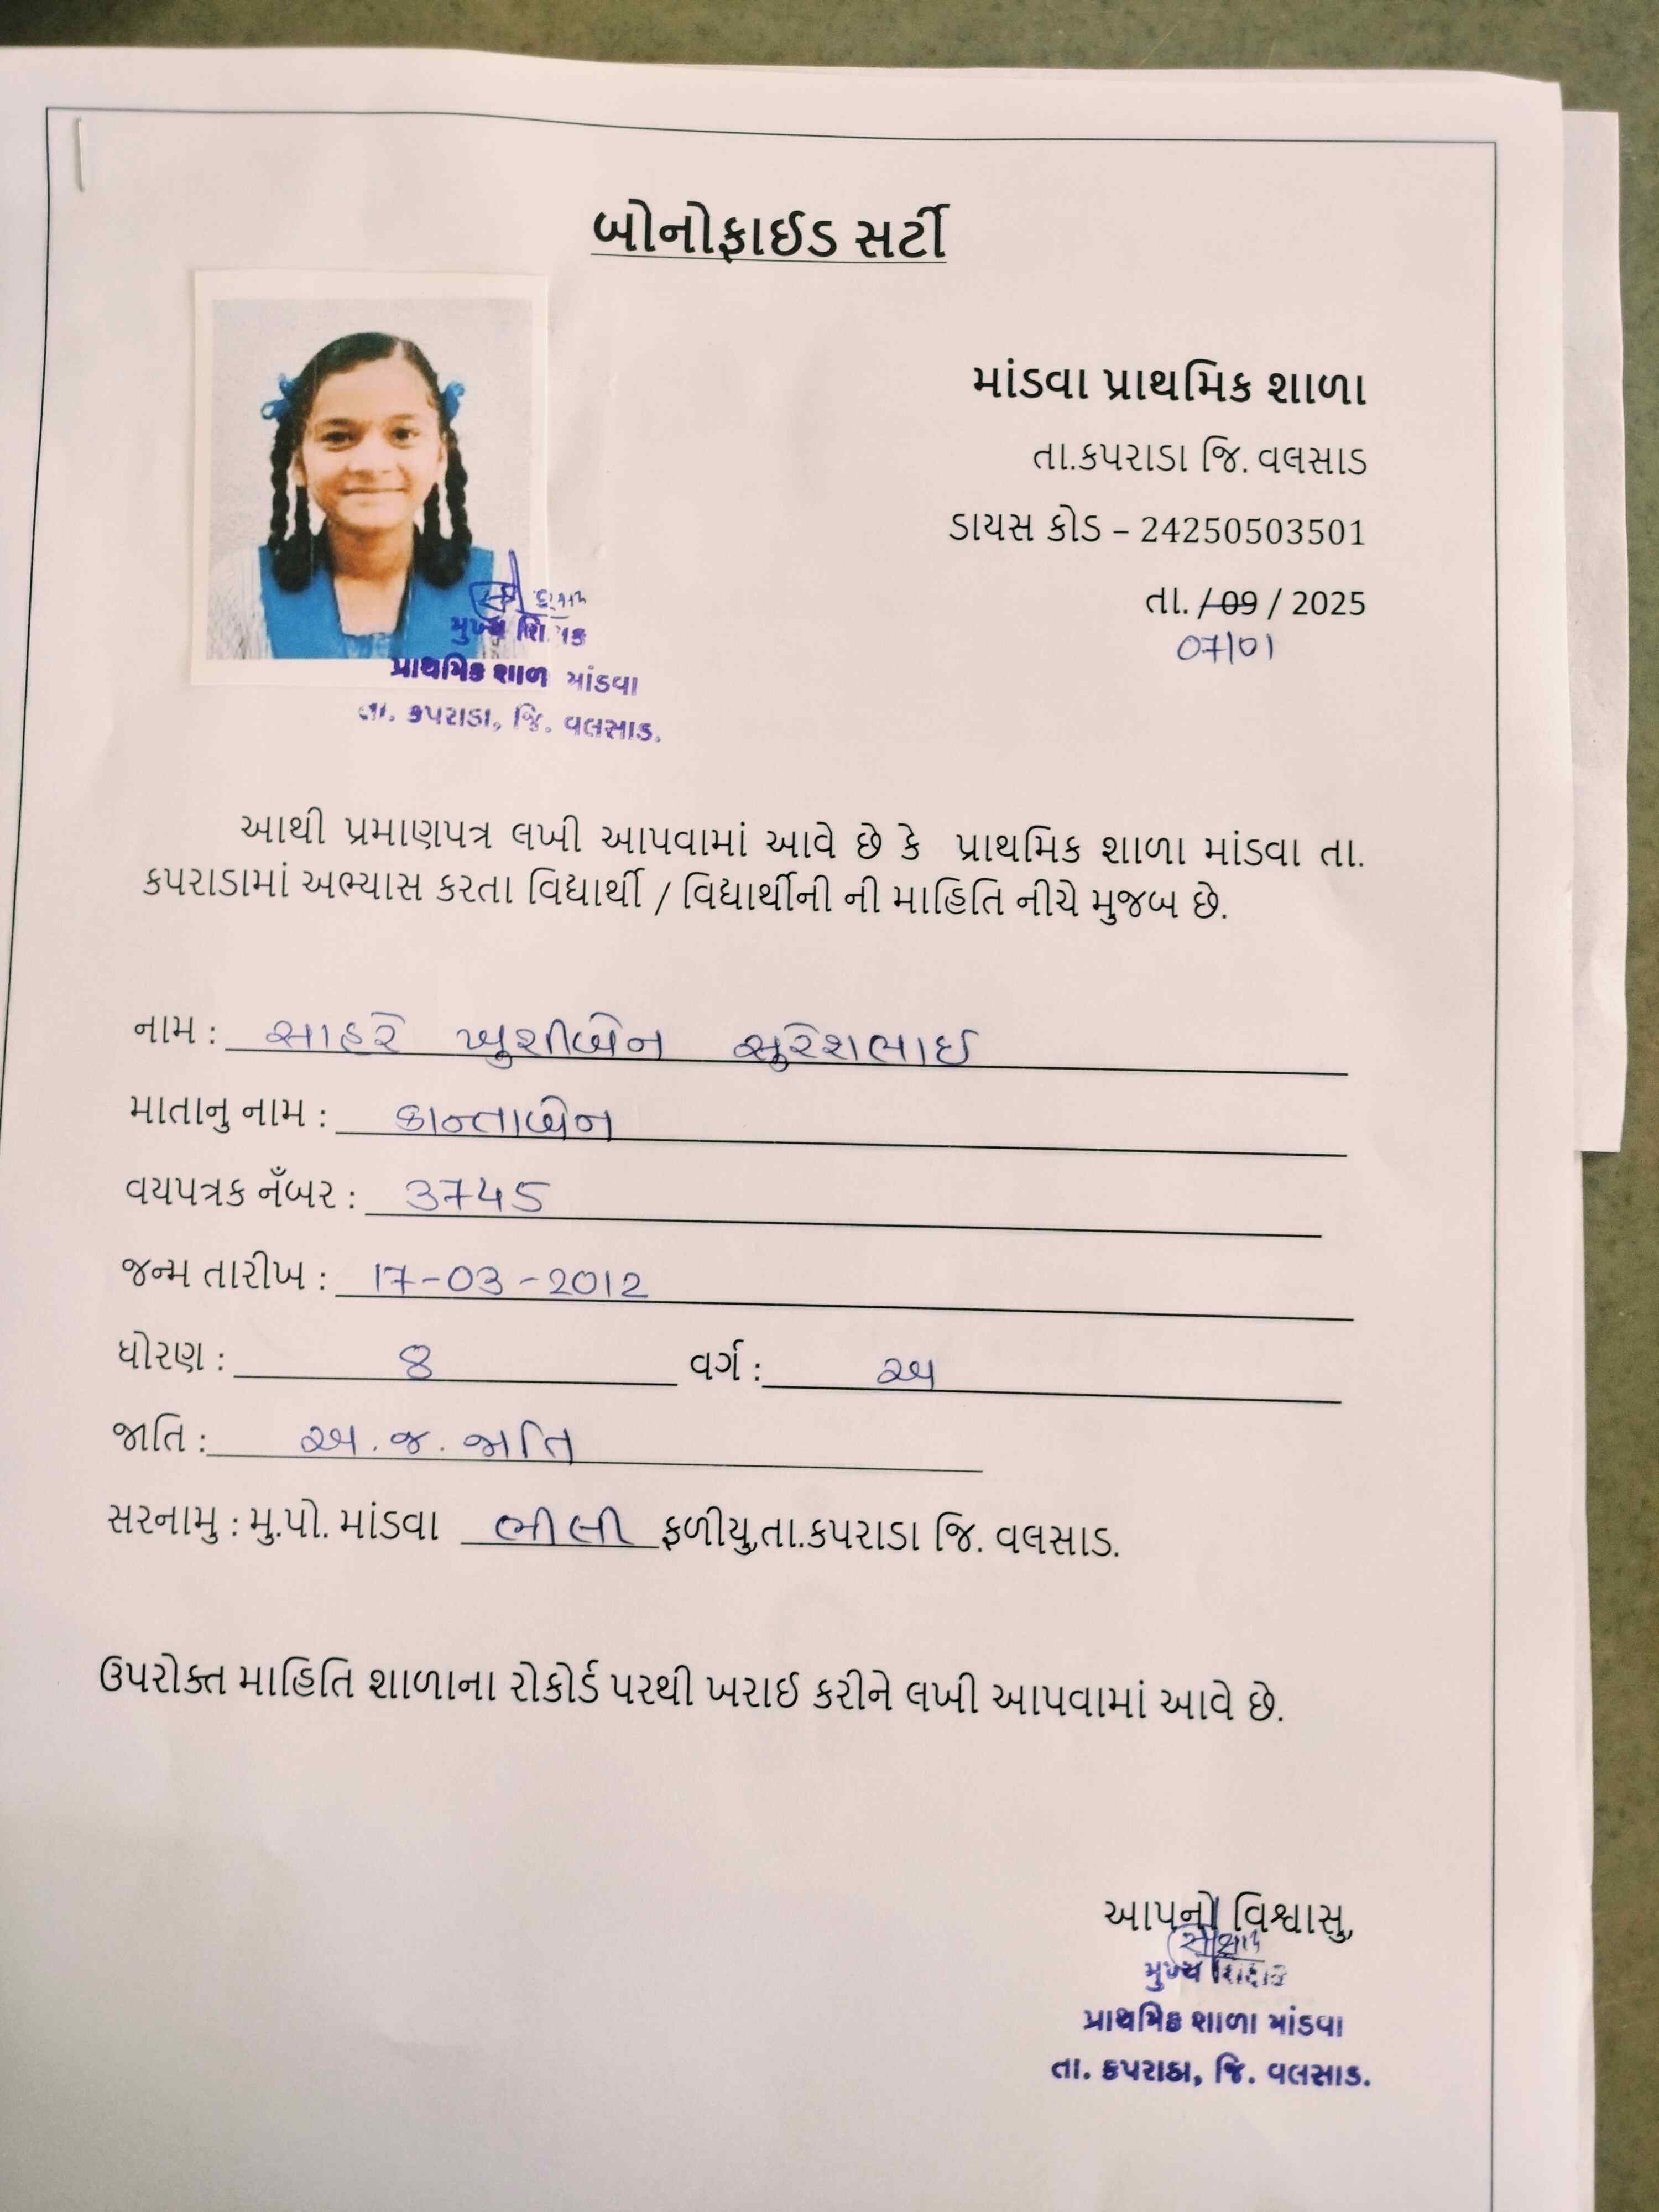 બોનોફાઈડ સર્ટી
માંડવા પ્રાથમિક શાળા
તા.કપરાડા જિ. વલસાડ
ડાયસ કોડ – 24250503501
તા. /09 / 2025
07/01
મુખ્ય શિક્ષક
પ્રાથમિક શાળા માંડવા
તા. કપરાડા, જિ. વલસાડ.
આથી પ્રમાણપત્ર લખી આપવામાં આવે છે કે પ્રાથમિક શાળા માંડવા તા.
કપરાડામાં અભ્યાસ કરતા વિદ્યાર્થી / વિદ્યાર્થીની ની માહિતિ નીચે મુજબ છે.
નામ : સાહરે ખુશીબેન સુરેશભાઈ
માતાનુ નામ : કાન્તાબેન
વયપત્રક નઁબર : 3745
જન્મ તારીખ : 17-03-2012
ધોરણ : 8 વર્ગ : અ
જાતિ : અ.જ.જાતિ
સરનામુ : મુ.પો. માંડવા ભીલી ફળીયુ,તા.કપરાડા જિ. વલસાડ.
ઉપરોક્ત માહિતિ શાળાના રોકોર્ડ પરથી ખરાઈ કરીને લખી આપવામાં આવે છે.
આપનો વિશ્વાસુ,
મુખ્ય શિક્ષક
પ્રાથમિક શાળા માંડવા
તા. કપરાડા, જિ. વલસાડ.